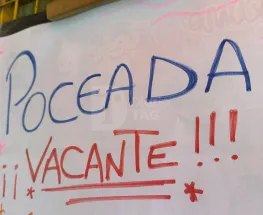 POCEADA
¡¡VACANTE!!!